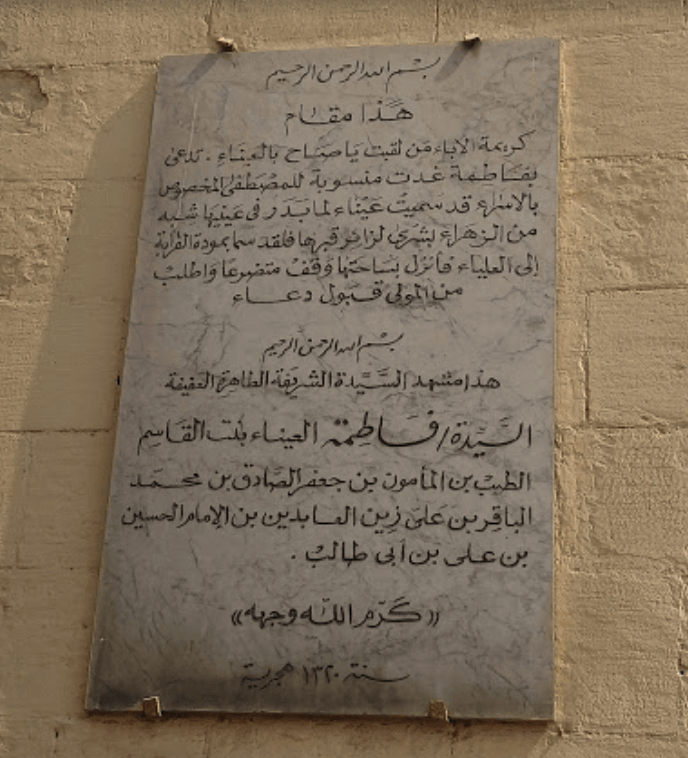 بسم الله الرحمن الرحيم
هَذا مقام
كريمة الآباء مَن لقبت يَا صَاح بالعينَاءِ . تدعى
بفَاطِمة غدت منسوبة للمصْطَفى المخصوص
بالاسْراء قد سميتْ عَيْناء لما بَدَر فى عَينِهَا شِبْه
من الزهراء بشرى لزائر قبرها فلقد سما بمودة القرابة
إلى العلياء فأنزل بسَاحتها وقفْ متضرعًا وَاطلبْ
من المولى قبول دعاء
بسم الله الرحمن الرحيم
هذا مشهد السَّيِّدة الشريفة الطاهرة العفيفة
السَّيِّدة/ فَاطِمة العيناء بنت القَاسِم
الطيب بن المأمون بن جعفر الصَّادق بن محمد
الباقِر بن عَلى زين العابدين بن الإمام الحسين
بن على بن أبى طالبْ .
« كَرّم اللّه وجهه »
سنة ١٣٢٠ هجرية